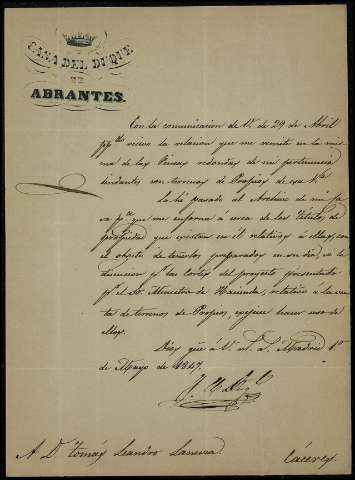 CASA DEL DUQUE
DE
ABRANTES.
Con la comunicacion de V. de 29 de Abril
ppdo recivo la relacion que me remite en la mis-
ma de las Fincas redondas de mi pertenencia
lindantes con terrenos de Propios de esa Va
La he pasado al Archivo de mi Ca-
sa pa que me informe á cerca de los Títulos de
propiedad que existan en él relativos á ellas, con
el objeto de tenerlos preparados en su dia, si la
discusion pr las Cortes del proyecto presentado
pr el Sr Ministro de Hacienda, relativo á la ven-
ta de terrenos de Propios, exijiese hacer uso de
ellos.
Dios gue á V. ms. as. Madrid 1o
de Mayo de 1847.
A Dn Tomás Leandro
Cáceres